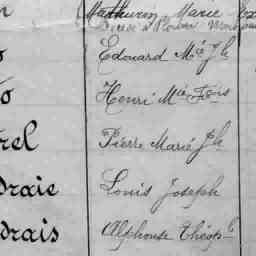 Mathurin Marie
Edouard Mie Jh
o Henri Mie Fois
rel Pierre Marie Jh
draie Louis Joseph
drais Alphonse Théop